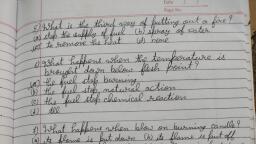 Date
Page No.
c) What is the third way of putting out a fire?
(a) stop the supply of fuel (b) spray of water
(c) to remove the heat (d) none
e) What happens when the temperature is
brought down below flash point?
(a) the fuel stop burning
(b) the fuel stop natural action
(c) the fuel stop chemical reaction
(d) all
f) What happens when blow on burning candle?
(a) its flame is put down (b) its flame is put off